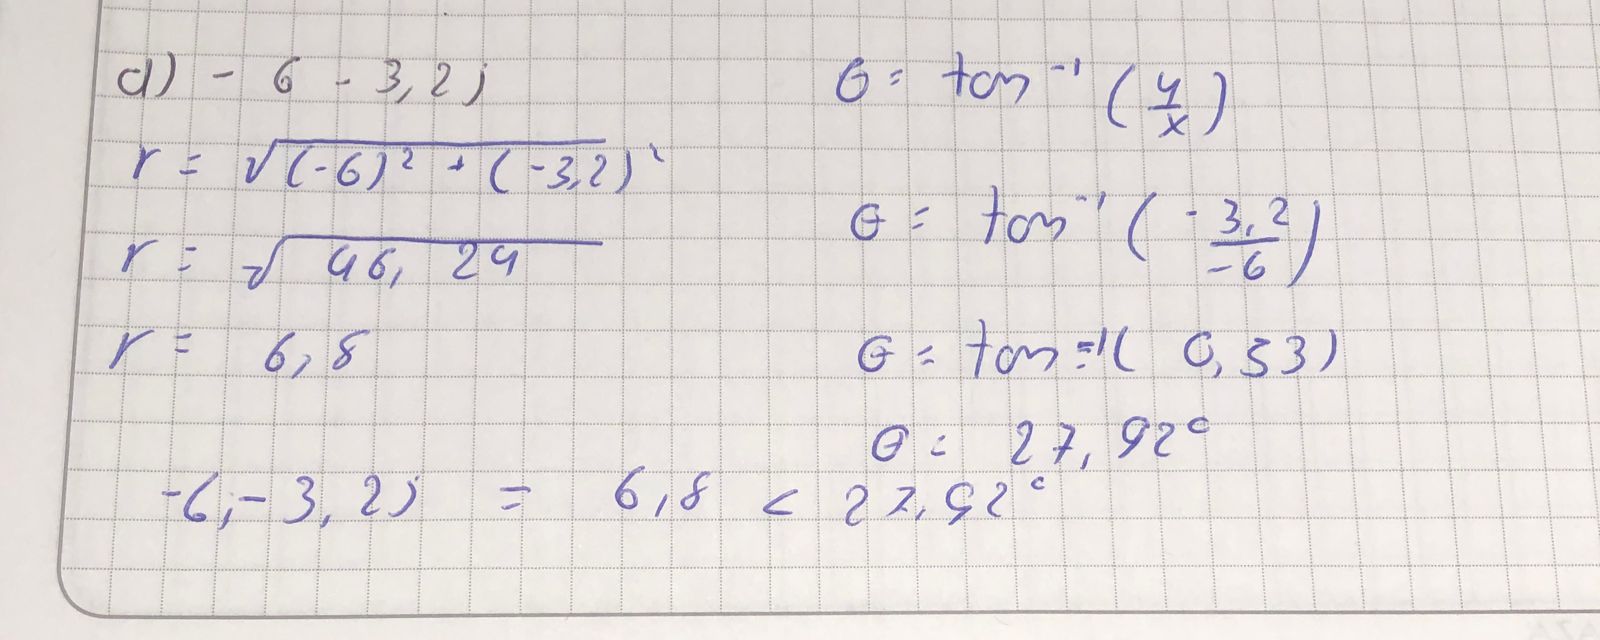 d) - 6 - 3,2j
r = √(-6)² + (-3,2)²
r = √46, 24
r = 6,8
θ = tan⁻¹ (y/x)
θ = tan⁻¹ (-3,2/-6)
θ = tan⁻¹ ( 0,53)
θ = 27,92°
-6,-3,2j = 6,8 < 27,92°